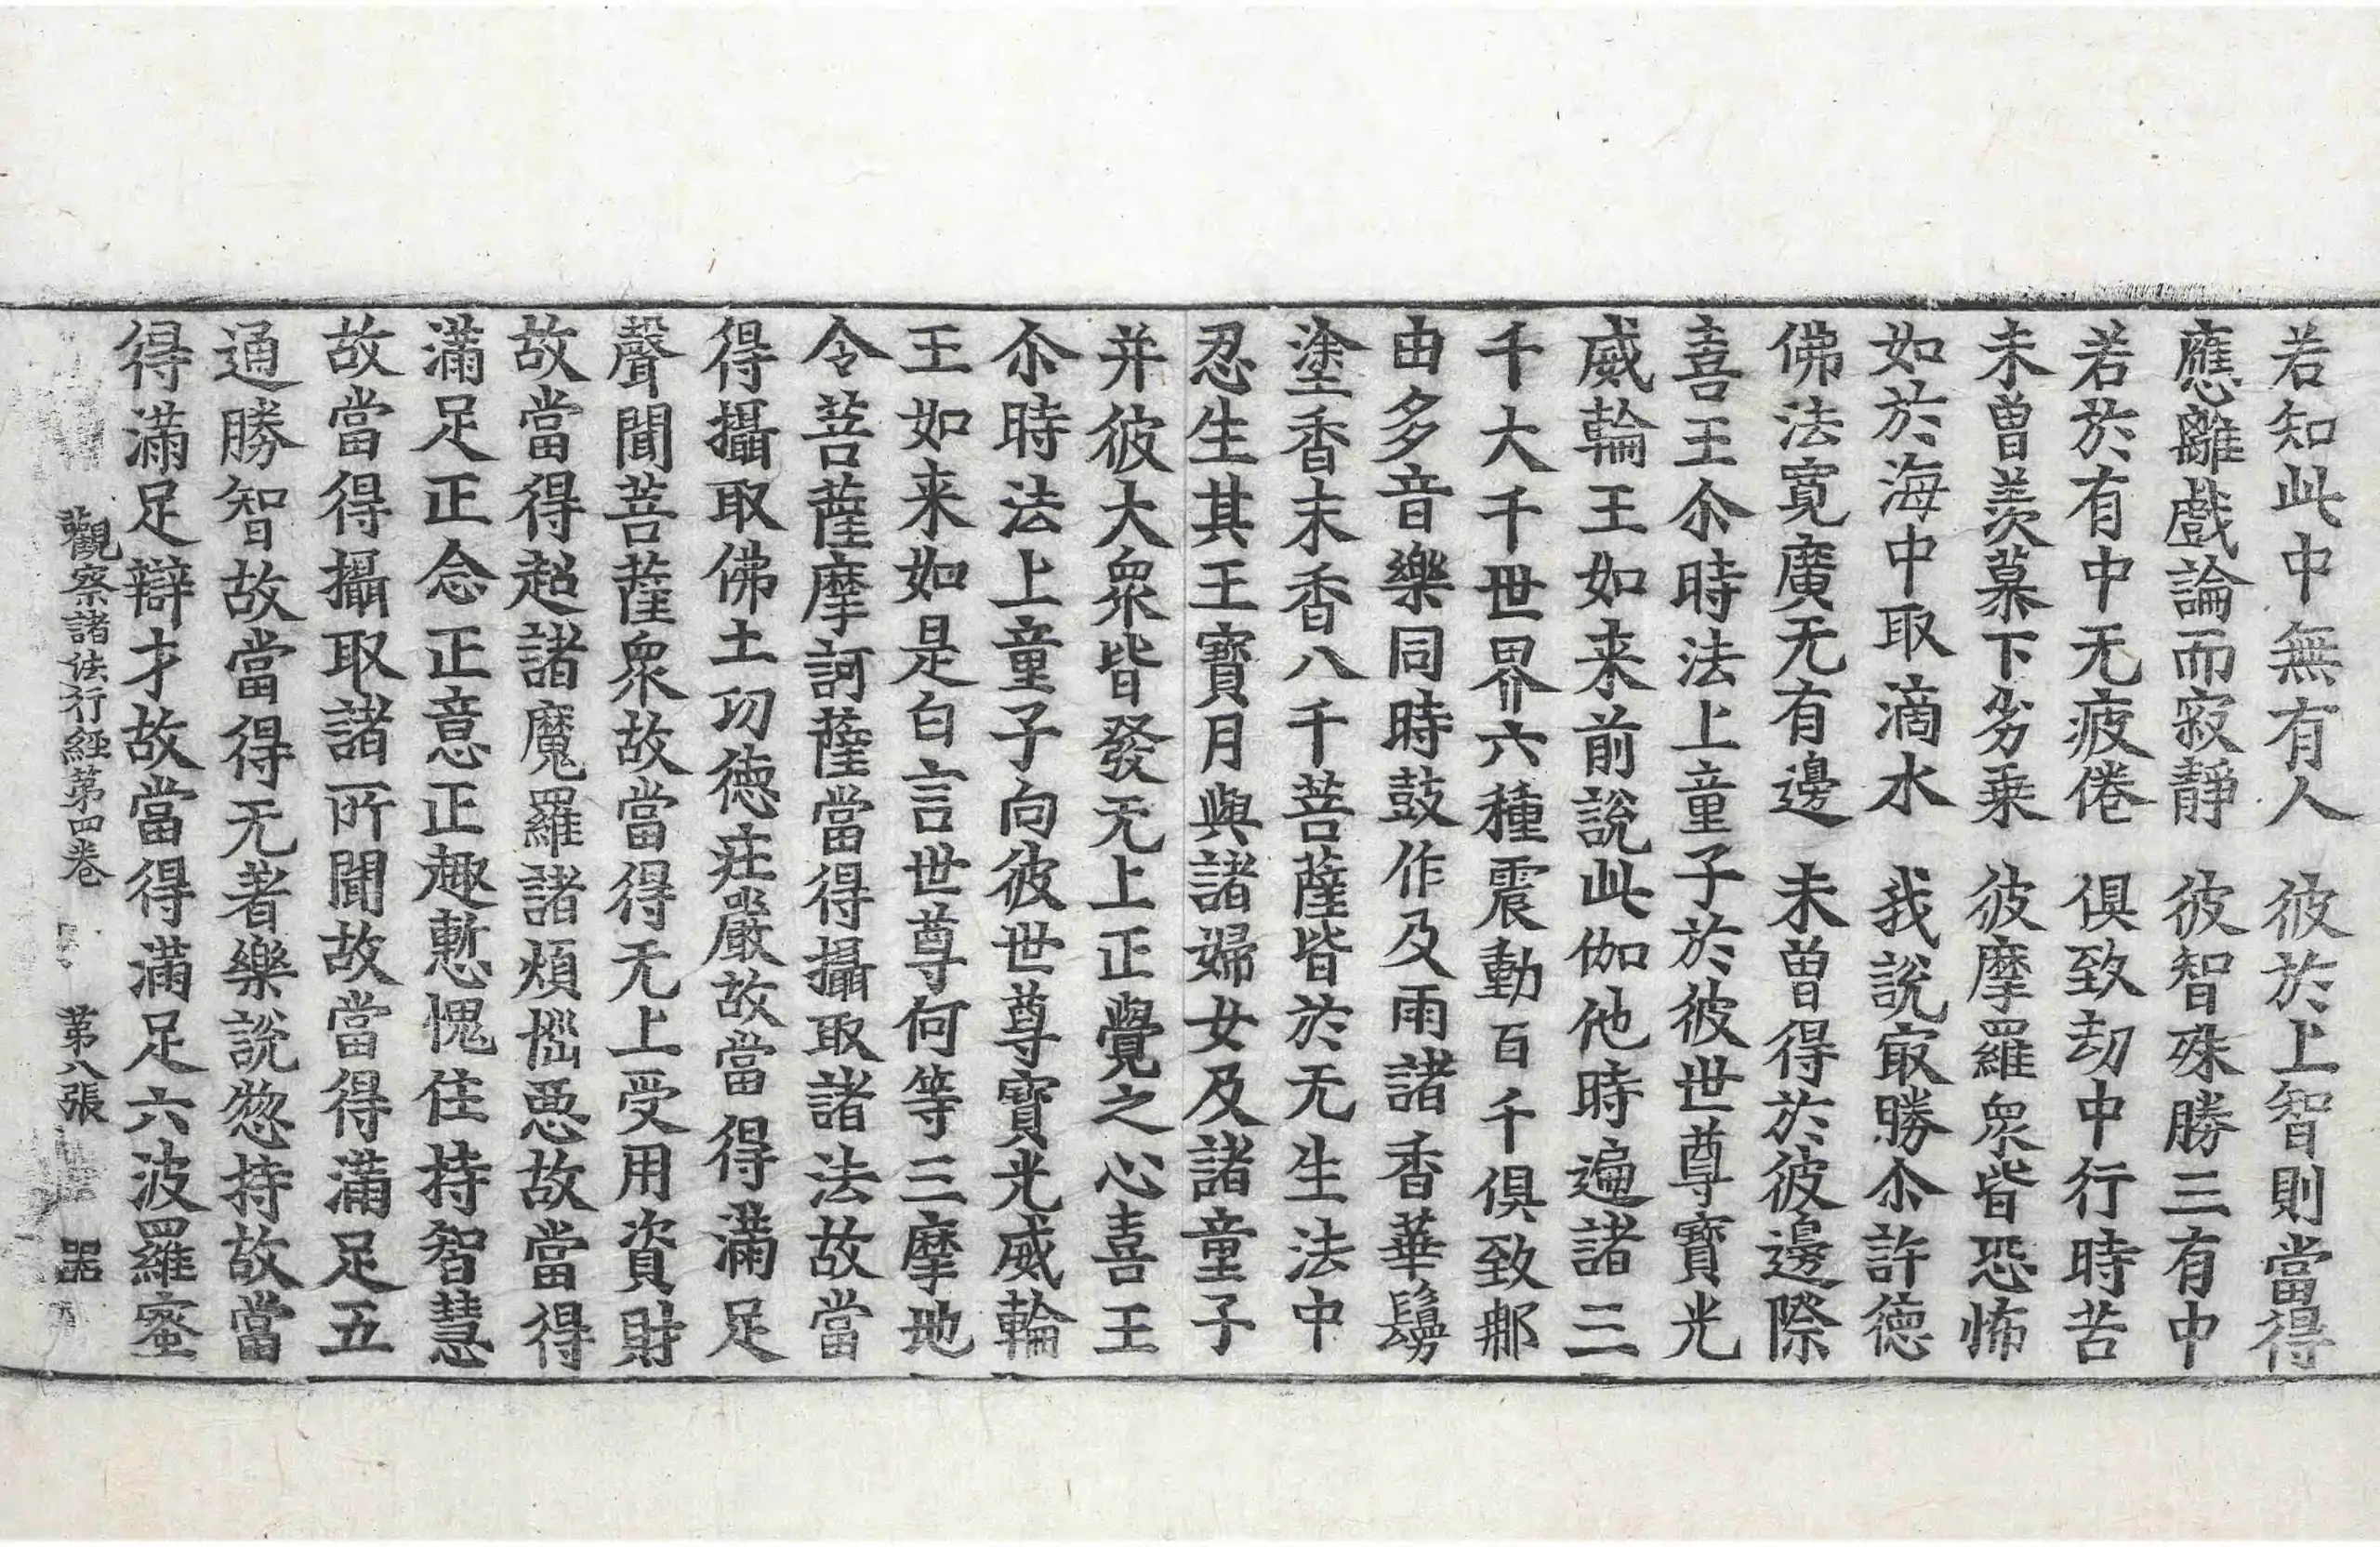 若知此中無有人　彼於上智則當得
應離戲論而寂靜　彼智殊勝三有中
若於有中无疲倦　俱致劫中行時苦
未曽羨慕下劣乗　彼摩羅衆皆恐怖
如於海中取滴水　我說㝡勝尒許德
佛法寛廣无有邊　未曽得於彼邊際
喜王尒時法上童子於彼世尊寶光
威輪王如来前說此伽他時遍諸三
千大千世界六種震動百千俱致郍
由多音樂同時鼓作及雨諸香華鬘
塗香末香八千菩薩皆於无生法中
忍生其王寶月與諸婦女及諸童子
并彼大衆皆發无上正覺之心喜王
尒時法上童子向彼世尊寶光威輪
王如来如是白言世尊何等三摩地
令菩薩摩訶薩當得攝取諸法故當
得攝取佛土功德莊嚴故當得滿足
聲聞菩薩衆故當得无上受用資財
故當得超諸魔羅諸煩惱惡故當得
滿足正念正意正趣慙愧住持智慧
故當得攝取諸所聞故當得滿足五
通勝智故當得无著樂說惣持故當
得滿足辯才故當得滿足六波羅蜜
觀察諸法行經第四卷　第八張　器